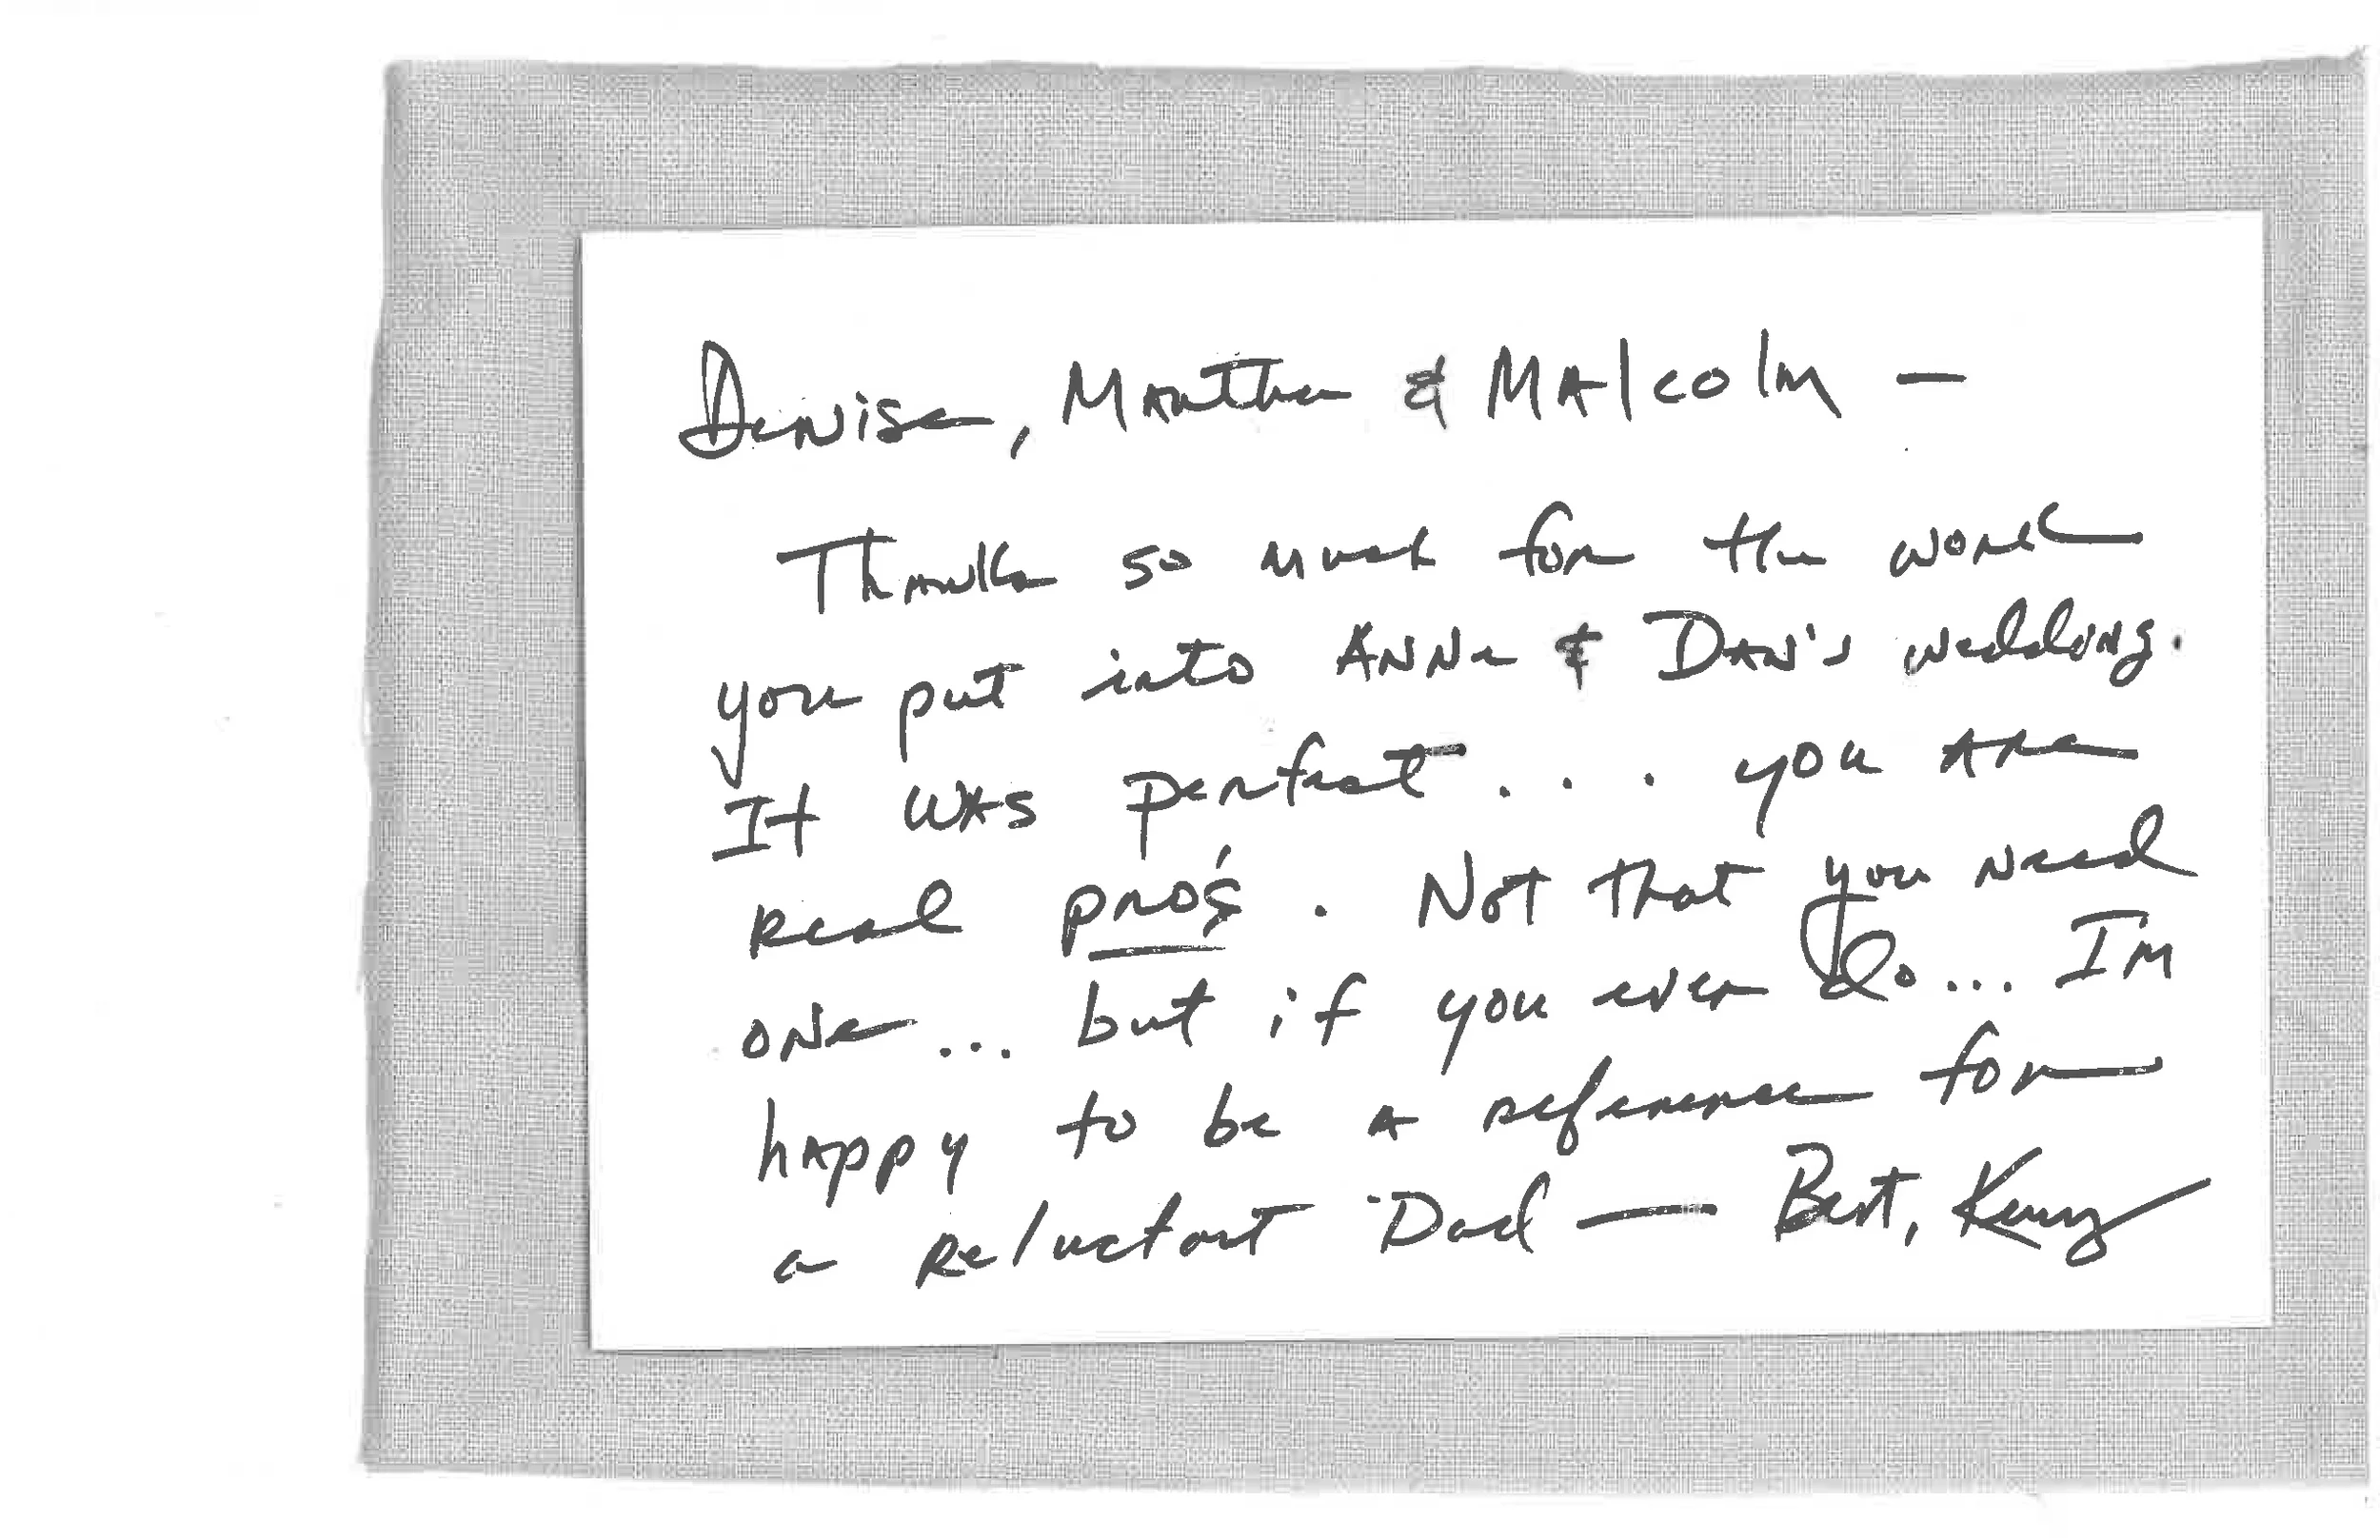 Denise, Martha & Malcolm —
Thanks so much for the work
you put into Anne & Dan's wedding.
It was perfect... you are
real pro's. Not that you need
one... but if you ever do... I'm
happy to be a reference for
a reluctant Dad — Best,